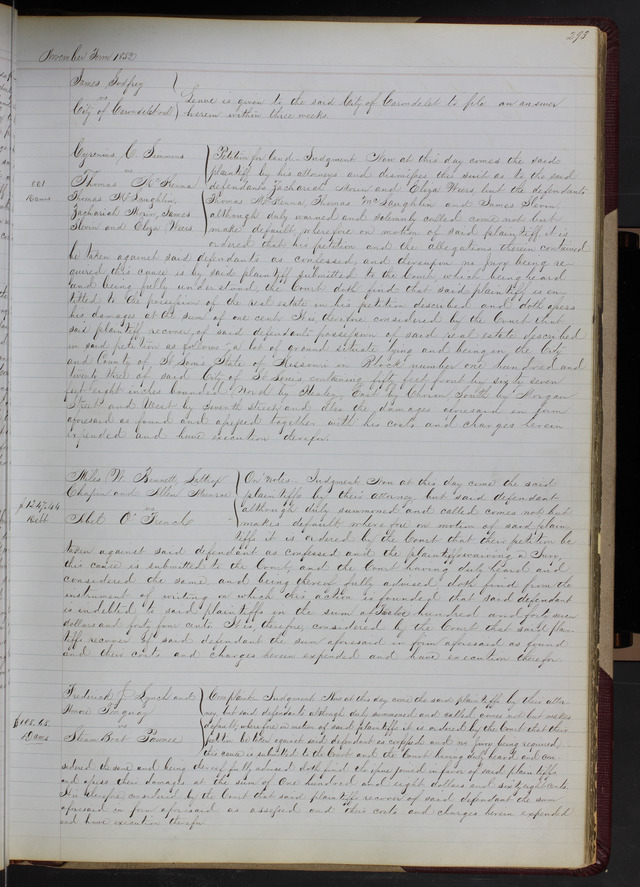 293
November Term 1852
James Godfrey
vs
City of Carondelet
Leave is given to the said City of Carondelet to file an answer
herein within three weeks
Cyrenius C. Simmons
vs
Thomas McKenna
Thomas McLaughlin
Zachariah Slevin, James
Slevin and Eliza Weirs
001
Dams
Petition for Land. Judgment Now at this day comes the said
plaintiff by his attorneys and dismisses their suit as to the said
defendants Zachariah Slevin and Eliza Weirs but the defendants
Thomas McKenna Thomas McLaughlin and James Slevin
although duly warned and solemnly called come not but
make default, wherefore on motion of said plaintiff it is
ordered that his petition and the allegations therein contained
be taken against said defendants as confessed, and thereupon no jury being re-
quired this cause is by said plaintiff submitted to the Court, which being heard
and being fully understood, the Court doth find that said plaintiff is en-
titled to the possession of the real estate in his petition described and doth assess
his damages at the sum of one cent. It is therefore considered by the Court that
said plaintiff recover of said defendants possession of said real estate described
in said petition as follows, a lot of ground situate lying and being in the City
and County of St Louis State of Missouri in Block number one hundred and
twenty three of said City of St Louis containing fifty feet front by sixty seven
feet eight inches bounded North by East by South by Morgan
Street and West by Seventh street, and also the damages aforesaid in form
aforesaid as found and assessed together with his costs and charges herein
expended and have execution therefor.
Miles W. Bennett, Saltus
Chapin and Allen Munroe
vs
Abel O. French
$1247.44
Debt
On Notes. Judgment Now at this day come the said
plaintiffs by their attorney but said defendant
although duly summoned and called comes not but
makes default wherefore on motion of said plain-
tiffs it is ordered by the Court that their petition be
taken against said defendant as confessed and the plaintiffs waiving a Jury,
this cause is submitted to the Court, and the Court having duly heard and
considered the same and being thereof fully advised doth find from the
instrument of writing on which this action is founded that said defendant
is indebted to said plaintiffs in the sum of Twelve hundred and forty seven
dollars and forty four cents. It is therefore considered by the Court that said plain-
tiffs recover of said defendant the sum aforesaid in form aforesaid as found
and their costs and charges herein expended and have execution therefor
Frederick J. Lynch and
vs
Steam Boat Pawnee
$108.68
Dams
Complaint Judgment Now at this day come the said plaintiffs by their attor-
ney, but said defendant although duly summoned and called comes not but makes
default, wherefore on motion of said plaintiffs it is ordered by the Court that their
petition be taken against said defendant as confessed and no jury being required
this cause is submitted to the Court and the Court having duly heard and con-
sidered the same and being thereof fully advised doth find the issue joined in favor of said plaintiffs
and assess their damages at the sum of One hundred and eight dollars and sixty eight cents.
It is therefore considered by the Court that said plaintiffs recover of said defendant the sum
aforesaid in form aforesaid as assessed and their costs and charges herein expended
and have execution therefor